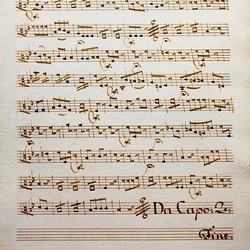 Da Capo:
Fine.